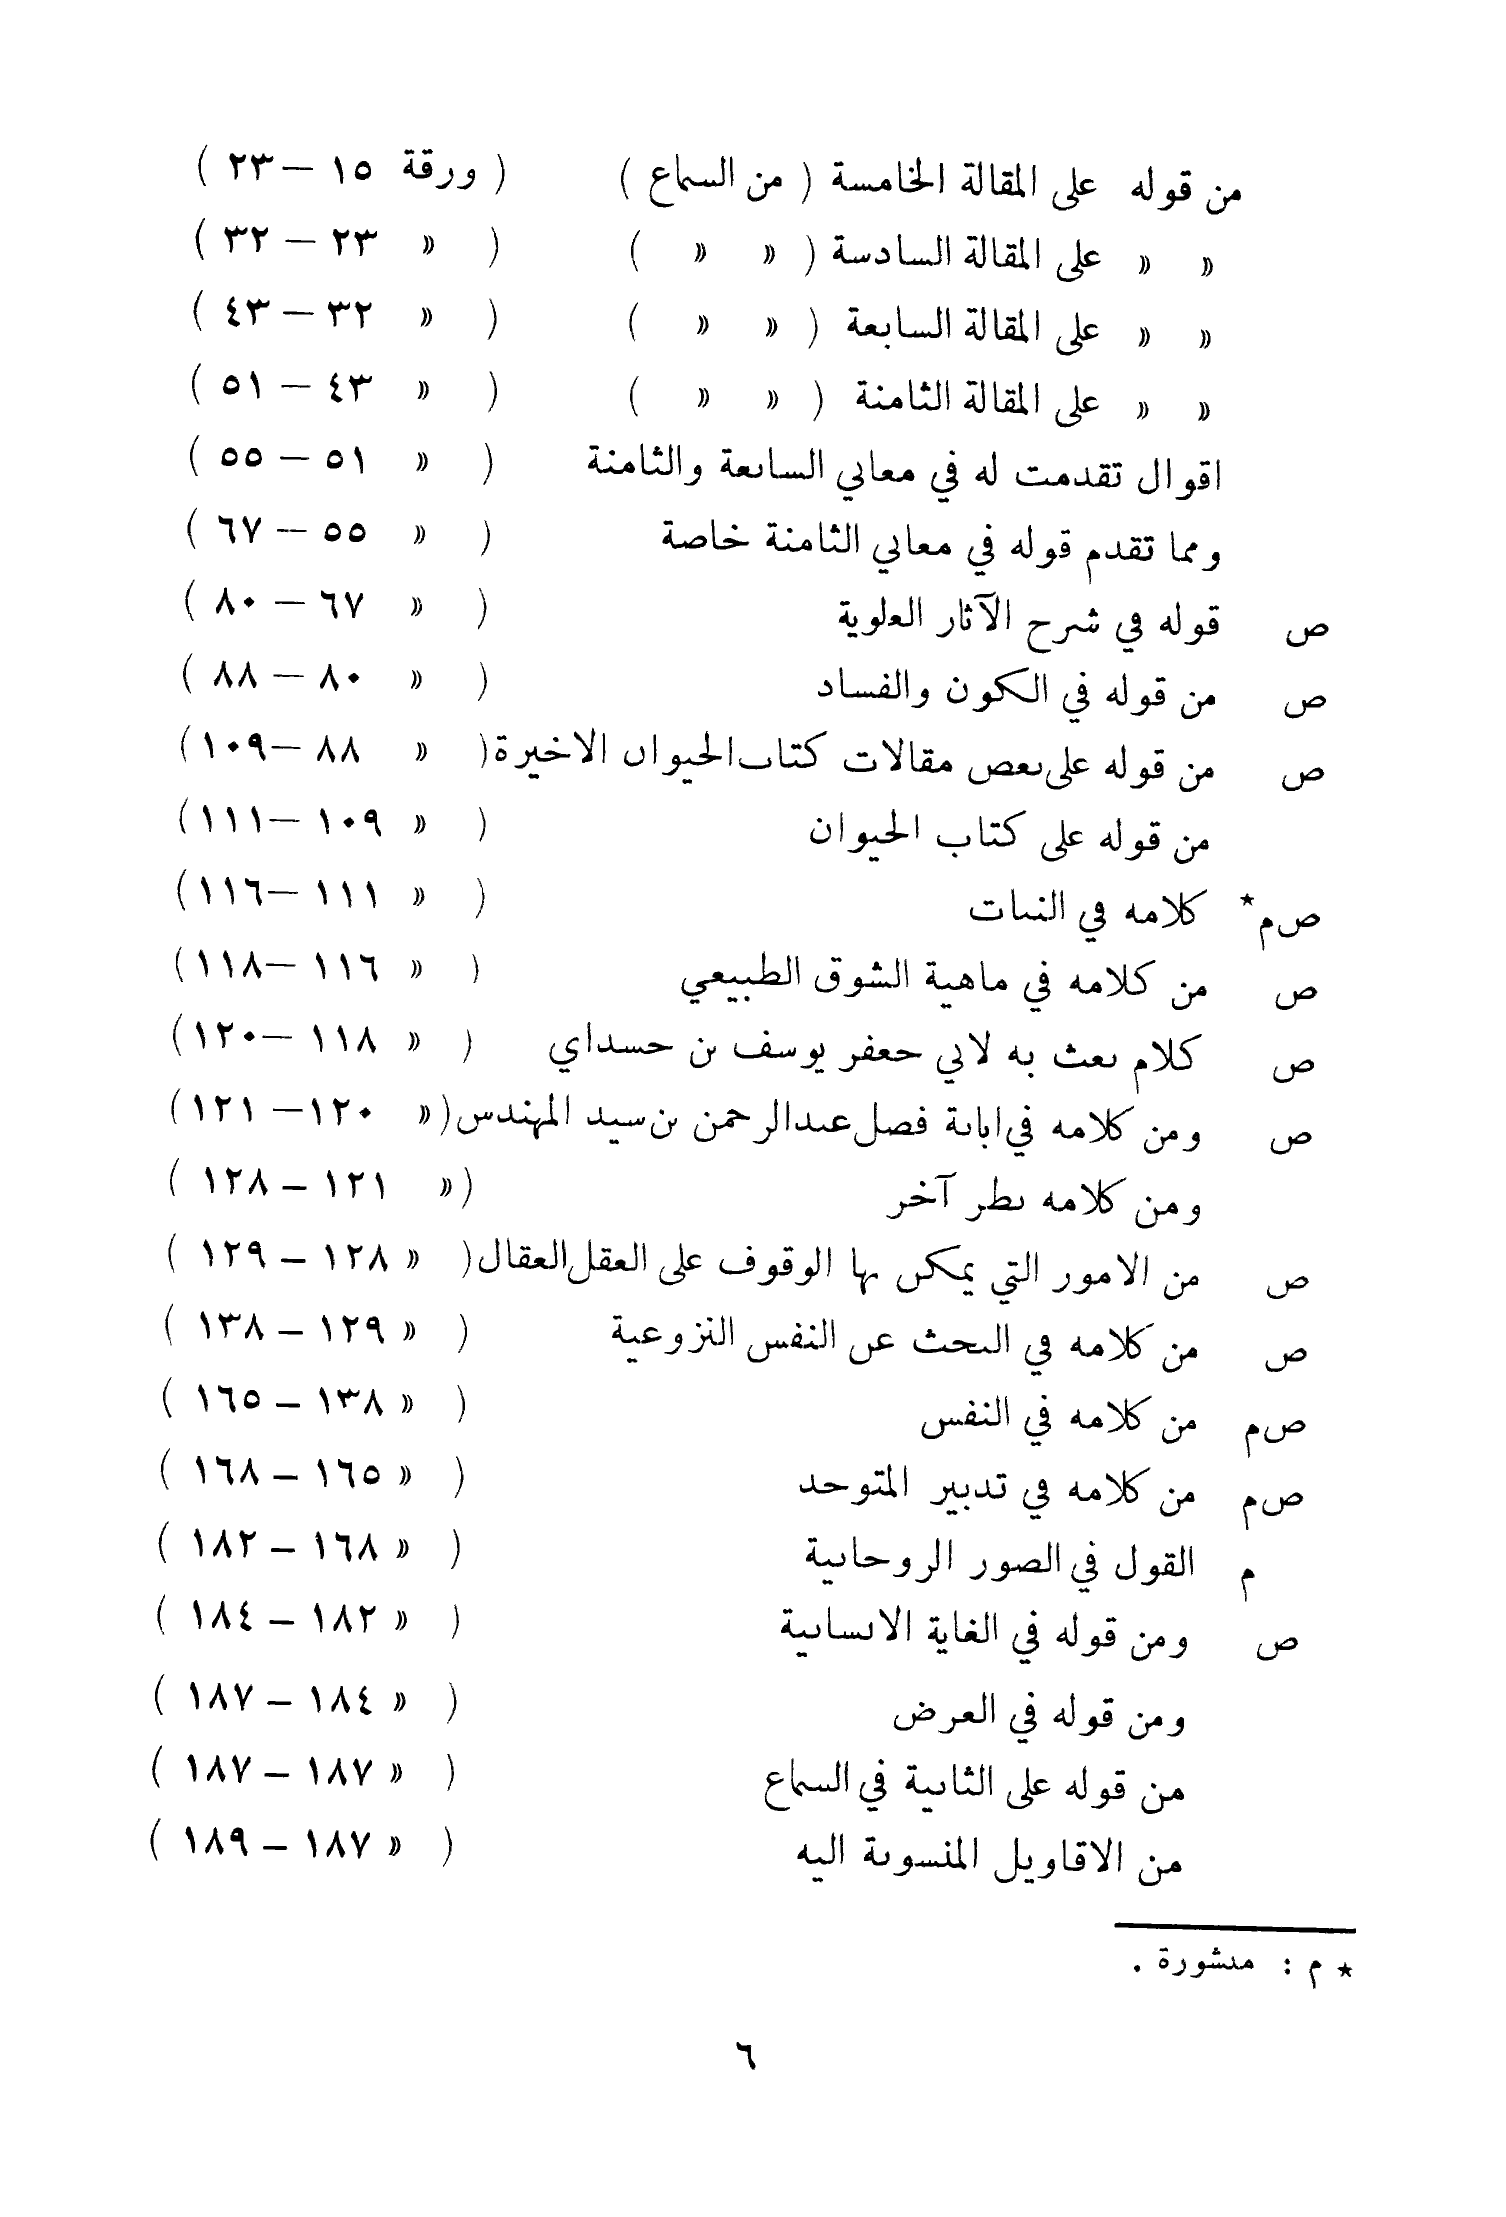 من قوله على المقالة الخامسة ( من السماع ) ( ورقة ١٥ – ٢٣ )
» » على المقالة السادسة ( » » ) ( » ٢٣ – ٣٢ )
» » على المقالة السابعة ( » » ) ( » ٣٢ – ٤٣ )
» » على المقالة الثامنة ( » » ) ( » ٤٣ – ٥١ )
اقوال تقدمت له في معاني السابعة والثامنة ( » ٥١ – ٥٥ )
ومما تقدم قوله في معاني الثامنة خاصة ( » ٥٥ – ٦٧ )
ص قوله في شرح الآثار العلوية ( » ٦٧ – ٨٠ )
ص من قوله في الكون والفساد ( » ٨٠ – ٨٨ )
ص من قوله على بعض مقالات كتاب الحيوان الاخيرة ( » ٨٨ – ١٠٩ )
من قوله على كتاب الحيوان ( » ١٠٩ – ١١١ )
ص م* كلامه في النبات ( » ١١١ – ١١٦ )
ص من كلامه في ماهية الشوق الطبيعي ( » ١١٦ – ١١٨ )
ص كلام بعث به لابي جعفر يوسف بن حسداي ( » ١١٨ – ١٢٠ )
ص ومن كلامه في ابانة فضل عبدالرحمن بن سيد المهندس ( » ١٢٠ – ١٢١ )
ومن كلامه نظر آخر ( » ١٢١ – ١٢٨ )
ص من الامور التي يمكن بها الوقوف على العقل العقال ( » ١٢٨ – ١٢٩ )
ص من كلامه في البحث عن النفس النزوعية ( » ١٢٩ – ١٣٨ )
ص م من كلامه في النفس ( » ١٣٨ – ١٦٥ )
ص م من كلامه في تدبير المتوحد ( » ١٦٥ – ١٦٨ )
م القول في الصور الروحانية ( » ١٦٨ – ١٨٢ )
ص ومن قوله في الغاية الانسانية ( » ١٨٢ – ١٨٤ )
ومن قوله في العرض ( » ١٨٤ – ١٨٧ )
من قوله على الثانية في السماع ( » ١٨٧ – ١٨٧ )
من الاقاويل المنسوبة اليه ( » ١٨٧ – ١٨٩ )
* م : منشورة .
٦